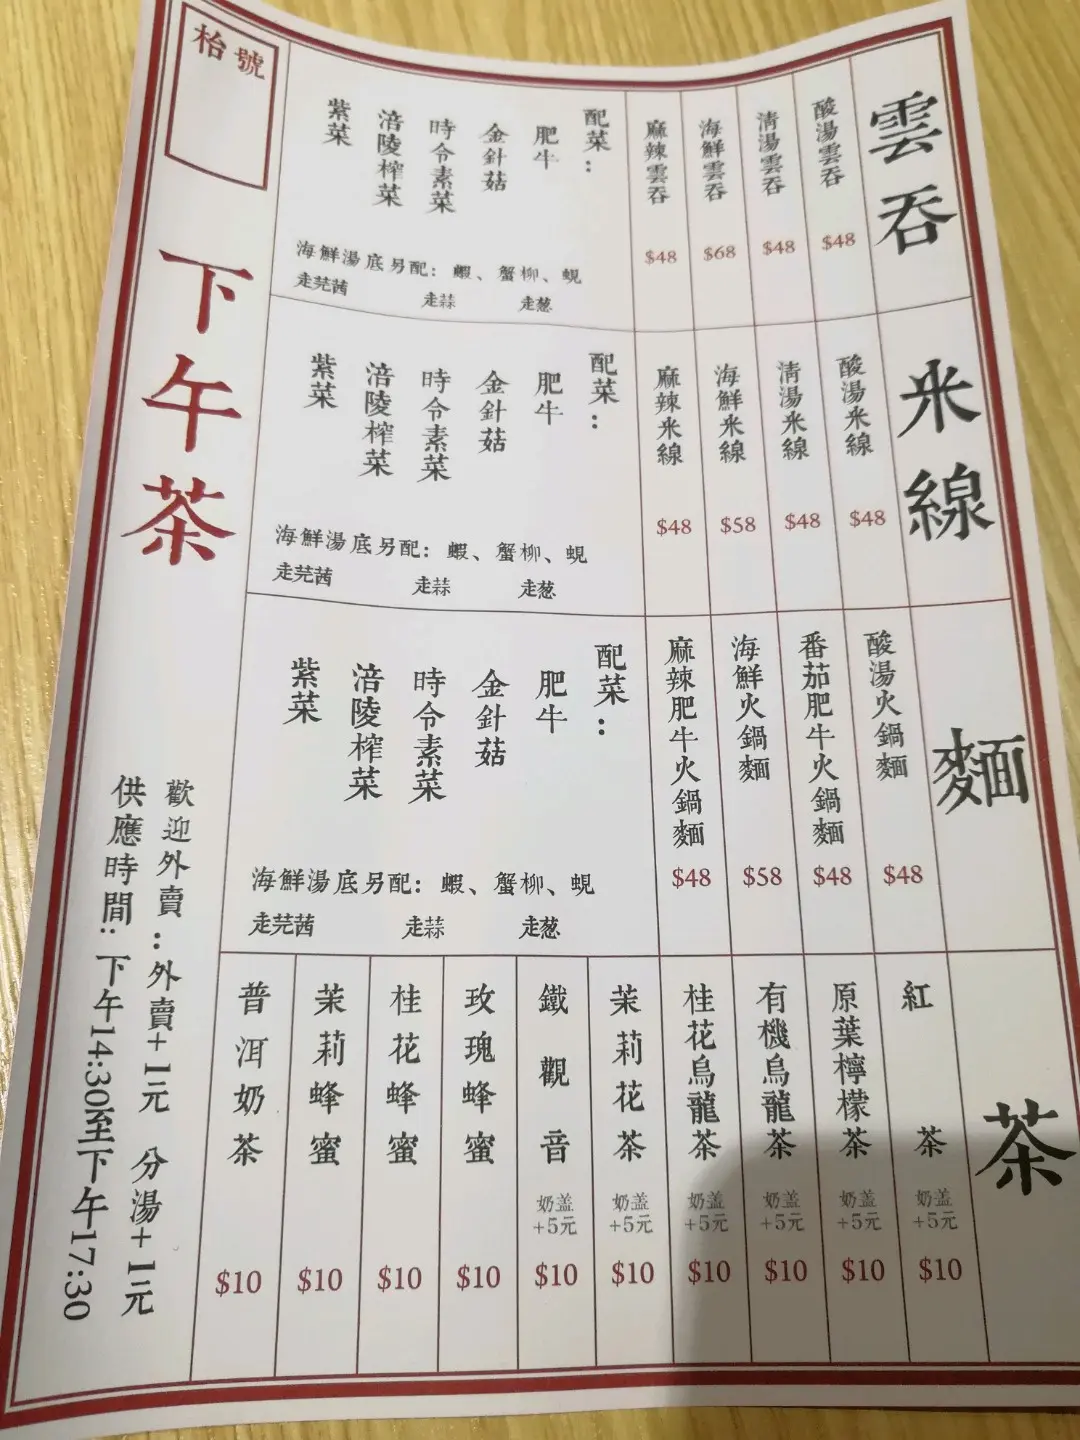 雲吞
酸湯雲吞 $48
清湯雲吞 $48
海鮮雲吞 $68
麻辣雲吞 $48
配菜：
肥牛
金針菇
時令素菜
涪陵榨菜
紫菜
海鮮湯底另配：蝦、蟹柳、蜆
走芫茜 走蒜 走葱
米線
酸湯米線 $48
清湯米線 $48
海鮮米線 $58
麻辣米線 $48
配菜：
肥牛
金針菇
時令素菜
涪陵榨菜
紫菜
海鮮湯底另配：蝦、蟹柳、蜆
走芫茜 走蒜 走葱
麵
酸湯火鍋麵 $48
番茄肥牛火鍋麵 $48
海鮮火鍋麵 $58
麻辣肥牛火鍋麵 $48
配菜：
肥牛
金針菇
時令素菜
涪陵榨菜
紫菜
海鮮湯底另配：蝦、蟹柳、蜆
走芫茜 走蒜 走葱
茶
紅茶 奶盖+5元 $10
原葉檸檬茶 奶盖+5元 $10
有機烏龍茶 奶盖+5元 $10
桂花烏龍茶 奶盖+5元 $10
茉莉花茶 奶盖+5元 $10
鐵觀音 奶盖+5元 $10
玫瑰蜂蜜 $10
桂花蜂蜜 $10
茉莉蜂蜜 $10
普洱奶茶 $10
枱號
下午茶
歡迎外賣：外賣+1元 分湯+1元
供應時間：下午14:30至下午17:30